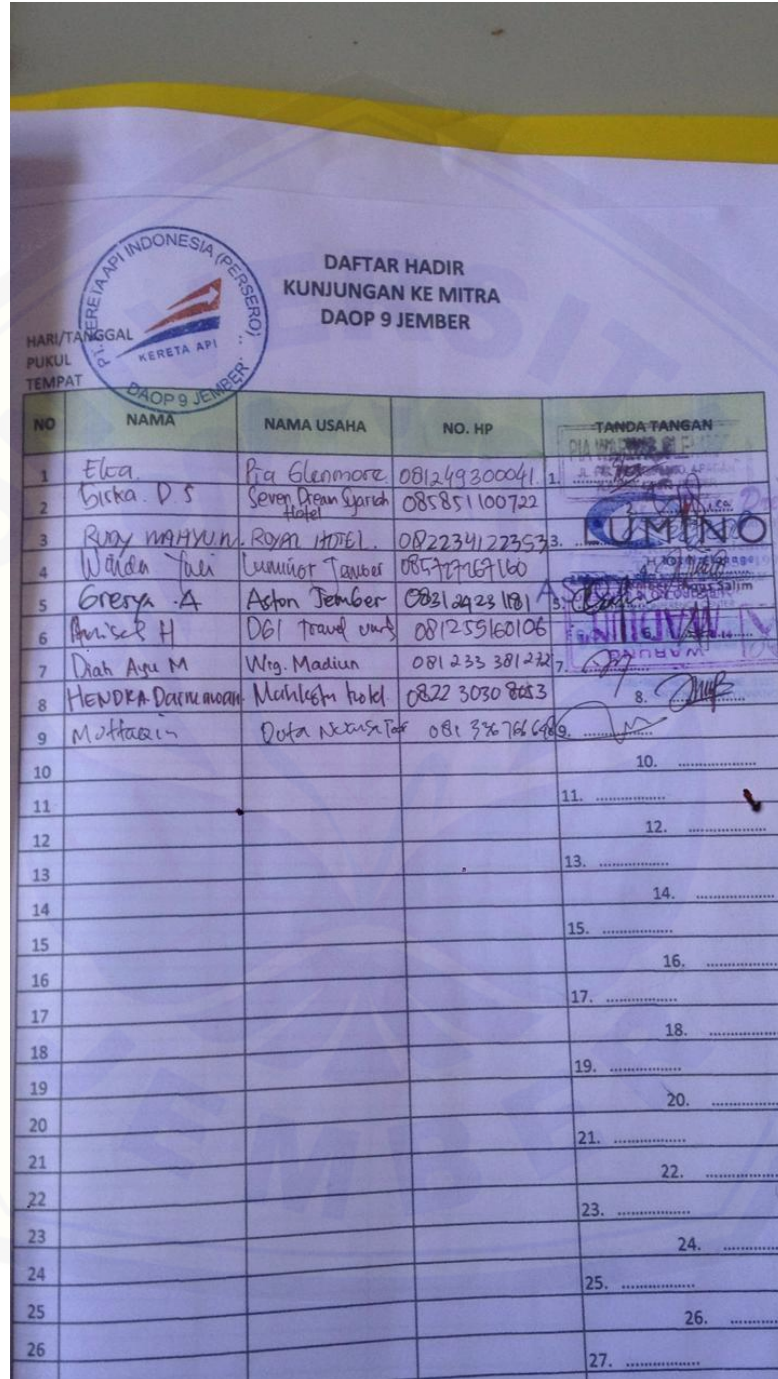 PT. KERETA API INDONESIA (PERSERO)
KERETA API
DAOP 9 JEMBER
DAFTAR HADIR
KUNJUNGAN KE MITRA
DAOP 9 JEMBER
HARI/TANGGAL
PUKUL
TEMPAT
NO NAMA NAMA USAHA NO. HP TANDA TANGAN
1 Elta Pia Glenmore 081249300041 1.
2 Siska D S Seven Dream Syariah Hotel 085851100722 2.
3 Rudy WAHYU.N. ROYAL HOTEL. 082234122353 3.
LUMINO
4 Luminor Jember 085727267160
5 Gresya .A Aston Jember 083124231181 5.
Salim
6 Annisa H travel 081255160106 6.
7 Diah Ayu M Wrg. Madiun 081 233 381 272 7.
WARUNG
MADIUN
8 HENDRA Darmawan 0822 3030 8053 8.
9 Muttaqin Duta 9.
10 10. ...................
11 11. .................
12 12. ...................
13 13. .................
14 14. ...................
15 15. .................
16 16. ...................
17 17. .................
18 18. ...................
19 19. .................
20 20. ...................
21 21. .................
22 22. ...................
23 23. .................
24 24. ...................
25 25. .................
26 26. ...................
27. .................